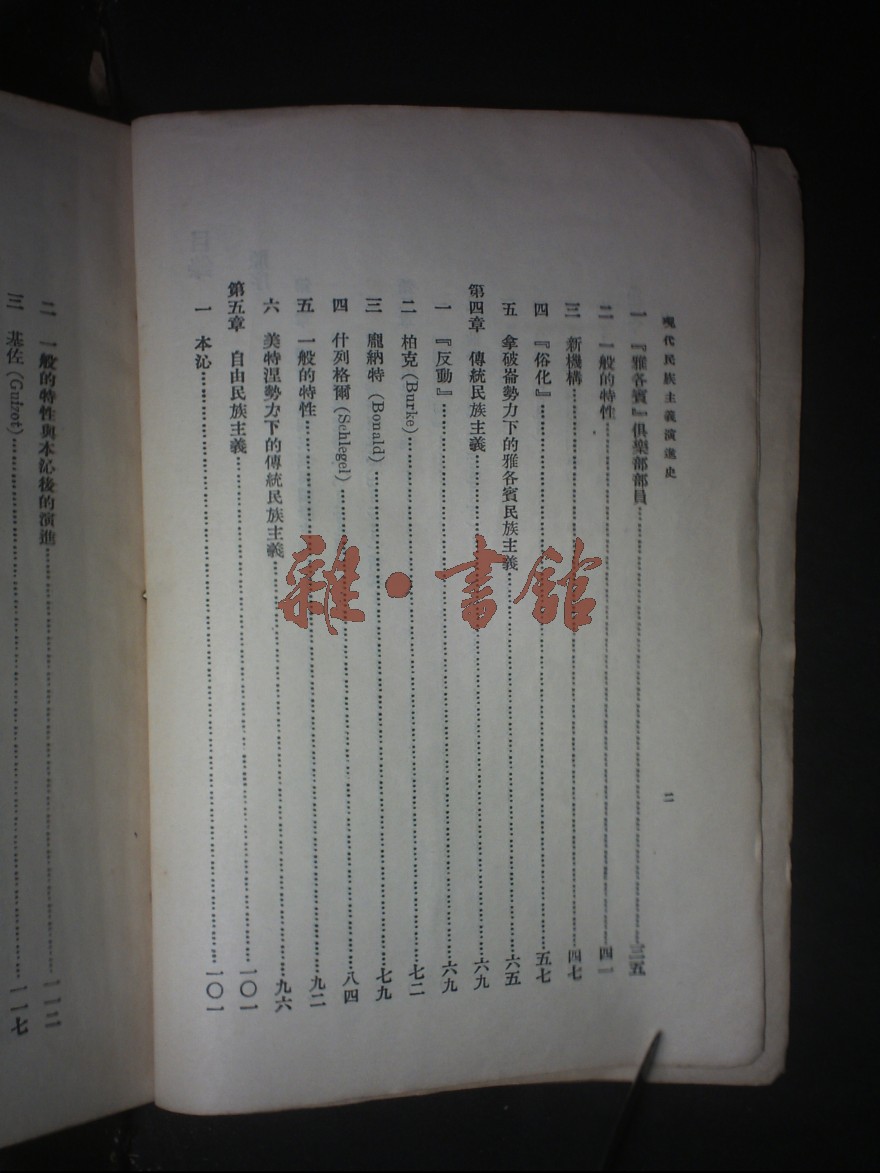 現代民族主義演進史
二
一 『雅各賓』俱樂部部員……三五
二 一般的特性……四一
三 新機構……四七
四 『俗化』……五七
五 拿破崙勢力下的雅各賓民族主義……六五
第四章 傳統民族主義……六九
一 『反動』……六九
二 柏克(Burke)……七二
三 龐納特(Bonald)……七九
四 什列格爾(Schlegel)……八四
五 一般的特性……九二
六 美特涅勢力下的傳統民族主義……九六
第五章 自由民族主義……一〇一
一 本沁……一〇一
二 一般的特性與本沁後的演進……一一二
三 基佐(Guizot)……一一七
雜·書館